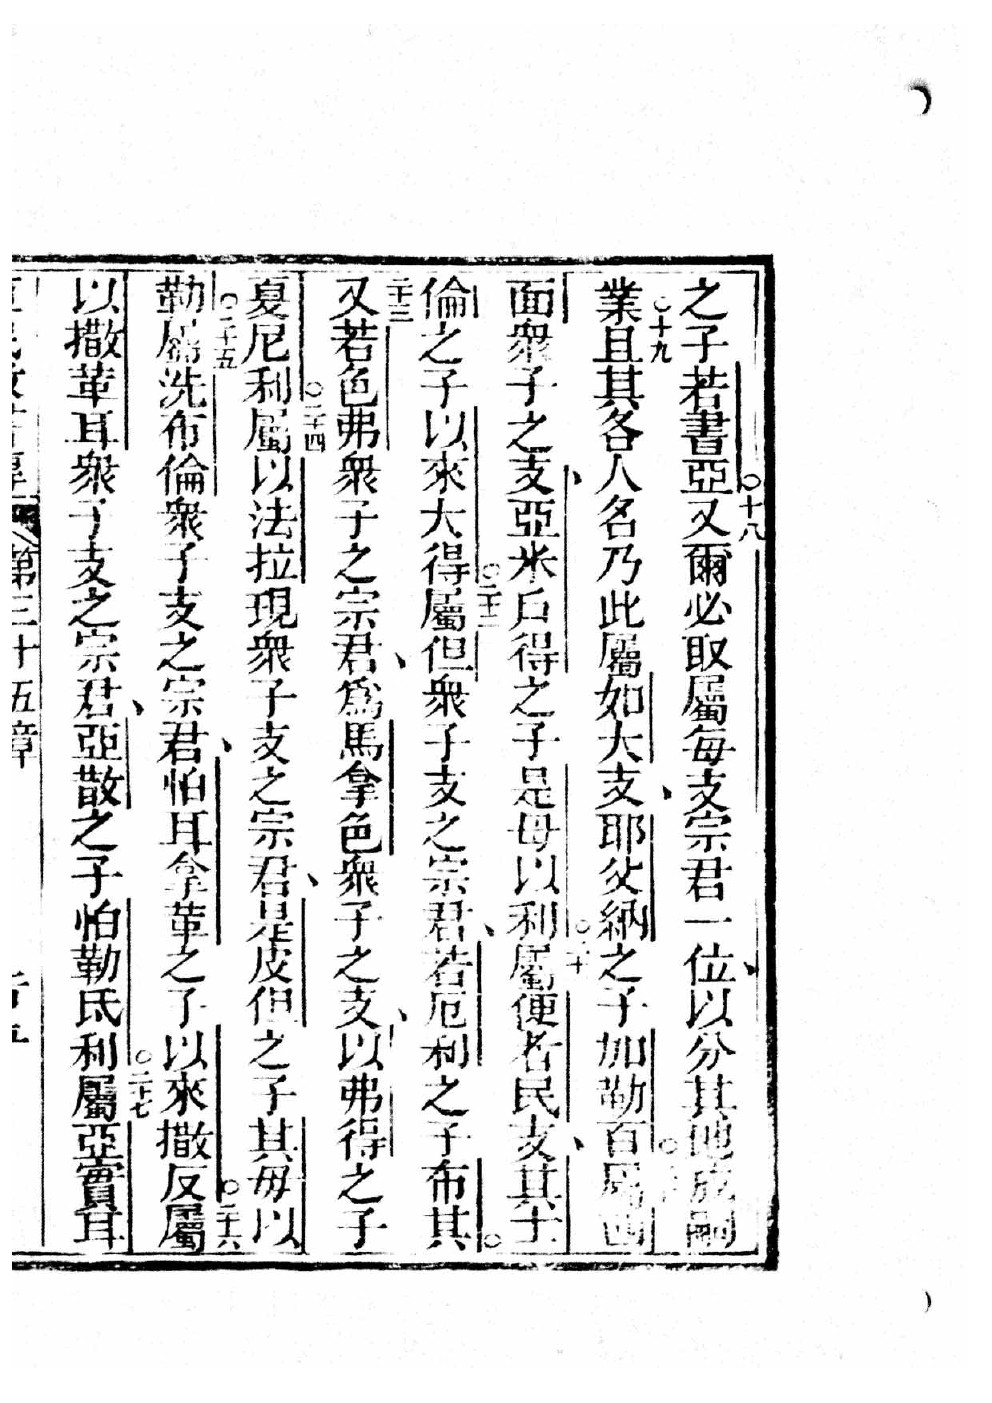 之子若書亞又爾必取屬每支宗君一位以分其地成嗣
十八
業且其各人名乃此屬如大支耶父納之子加勒百屬
十九
面衆子之支亞米戶得之子是母以利屬便者民支其士
二十
倫之子以來大得屬但衆子支之宗君若厄利之子布其
二十二
又若色弗衆子之宗君爲馬拿色衆子之支以弗得之子
二十三
夏尼利屬以法拉現衆子支之宗君是皮但之子其毋以
二十四
勒屬洗布倫衆子支之宗君怕耳拿革之子以來撒反屬
二十五
二十六
以撒革耳衆子支之宗君亞散之子怕勒氐利屬亞實耳
二十七
第三十五章